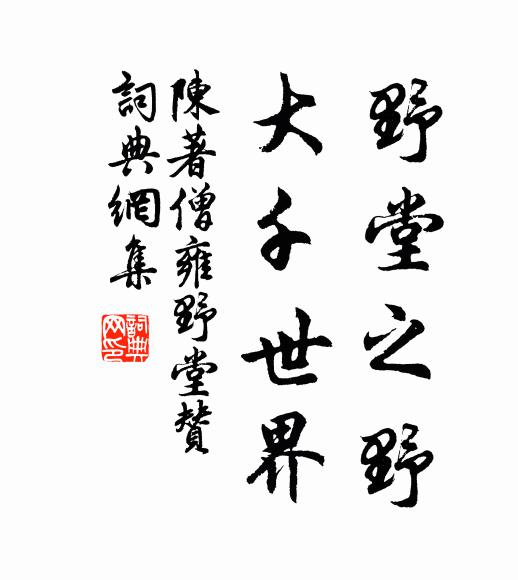 野堂之野
大千世界
陳著僧雍野堂贊
詞典網集
詞典网印